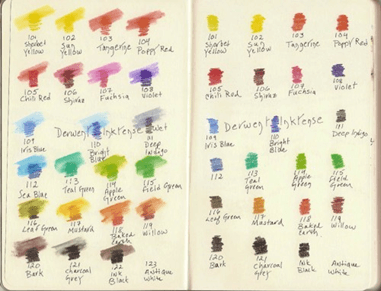 101
Sherbet
Yellow
102
Sun
Yellow
103
Tangerine
104
Poppy Red
105
Chili Red
106
Shiraz
107
Fuchsia
108
Violet
Derwent Inktense
109
Iris Blue
110
Bright
Blue
Wet
111
Deep
Indigo
112
Sea Blue
113
Teal Green
114
Apple
Green
115
Field Green
116
Leaf Green
117
Mustard
118
Baked
earth
119
Willow
120
Bark
121
Charcoal
Grey
122
Ink
Black
123
Antique
white
101
Sherbet
Yellow
102
Sun
Yellow
103
Tangerine
104
Poppy Red
105
Chili Red
106
Shiraz
107
Fuchsia
108
Violet
Derwent Inktense
109
Iris Blue
110
Bright
Blue
111
Deep
Indigo
112
113
Teal
Green
114
Apple
Green
115
Field
Green
116
Leaf Green
117
Mustard
118
Baked
earth
119
Willow
120
Bark
121
Charcoal
Grey
Ink
Black
Antique
White